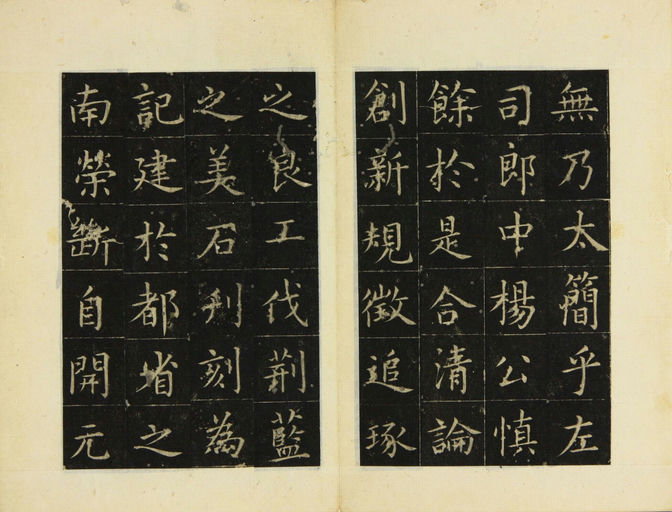 無乃太簡乎左
司郎中楊公慎
餘於是合清論
創新規徵追琢
之良工伐荆藍
之美石刋刻為
記建於都省之
南榮斷自開元